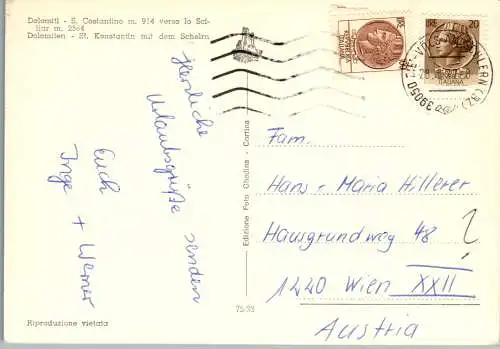 Dolomiti - S. Costantino m. 914 verso lo Sci-
liar m. 2564
Dolomiten - St. Konstantin mit dem Schelrn
Herzliche
Urlaubsgrüße senden
Euch
Inge + Werner
Riproduzione vietata
Edizione Foto Ghedina - Cortina
75/33
20
ITALIANA
39050
(BZ)
Fam.
Hans-Maria Hillerer
Hausgrundweg 48
?
1220 Wien XXII
Austria